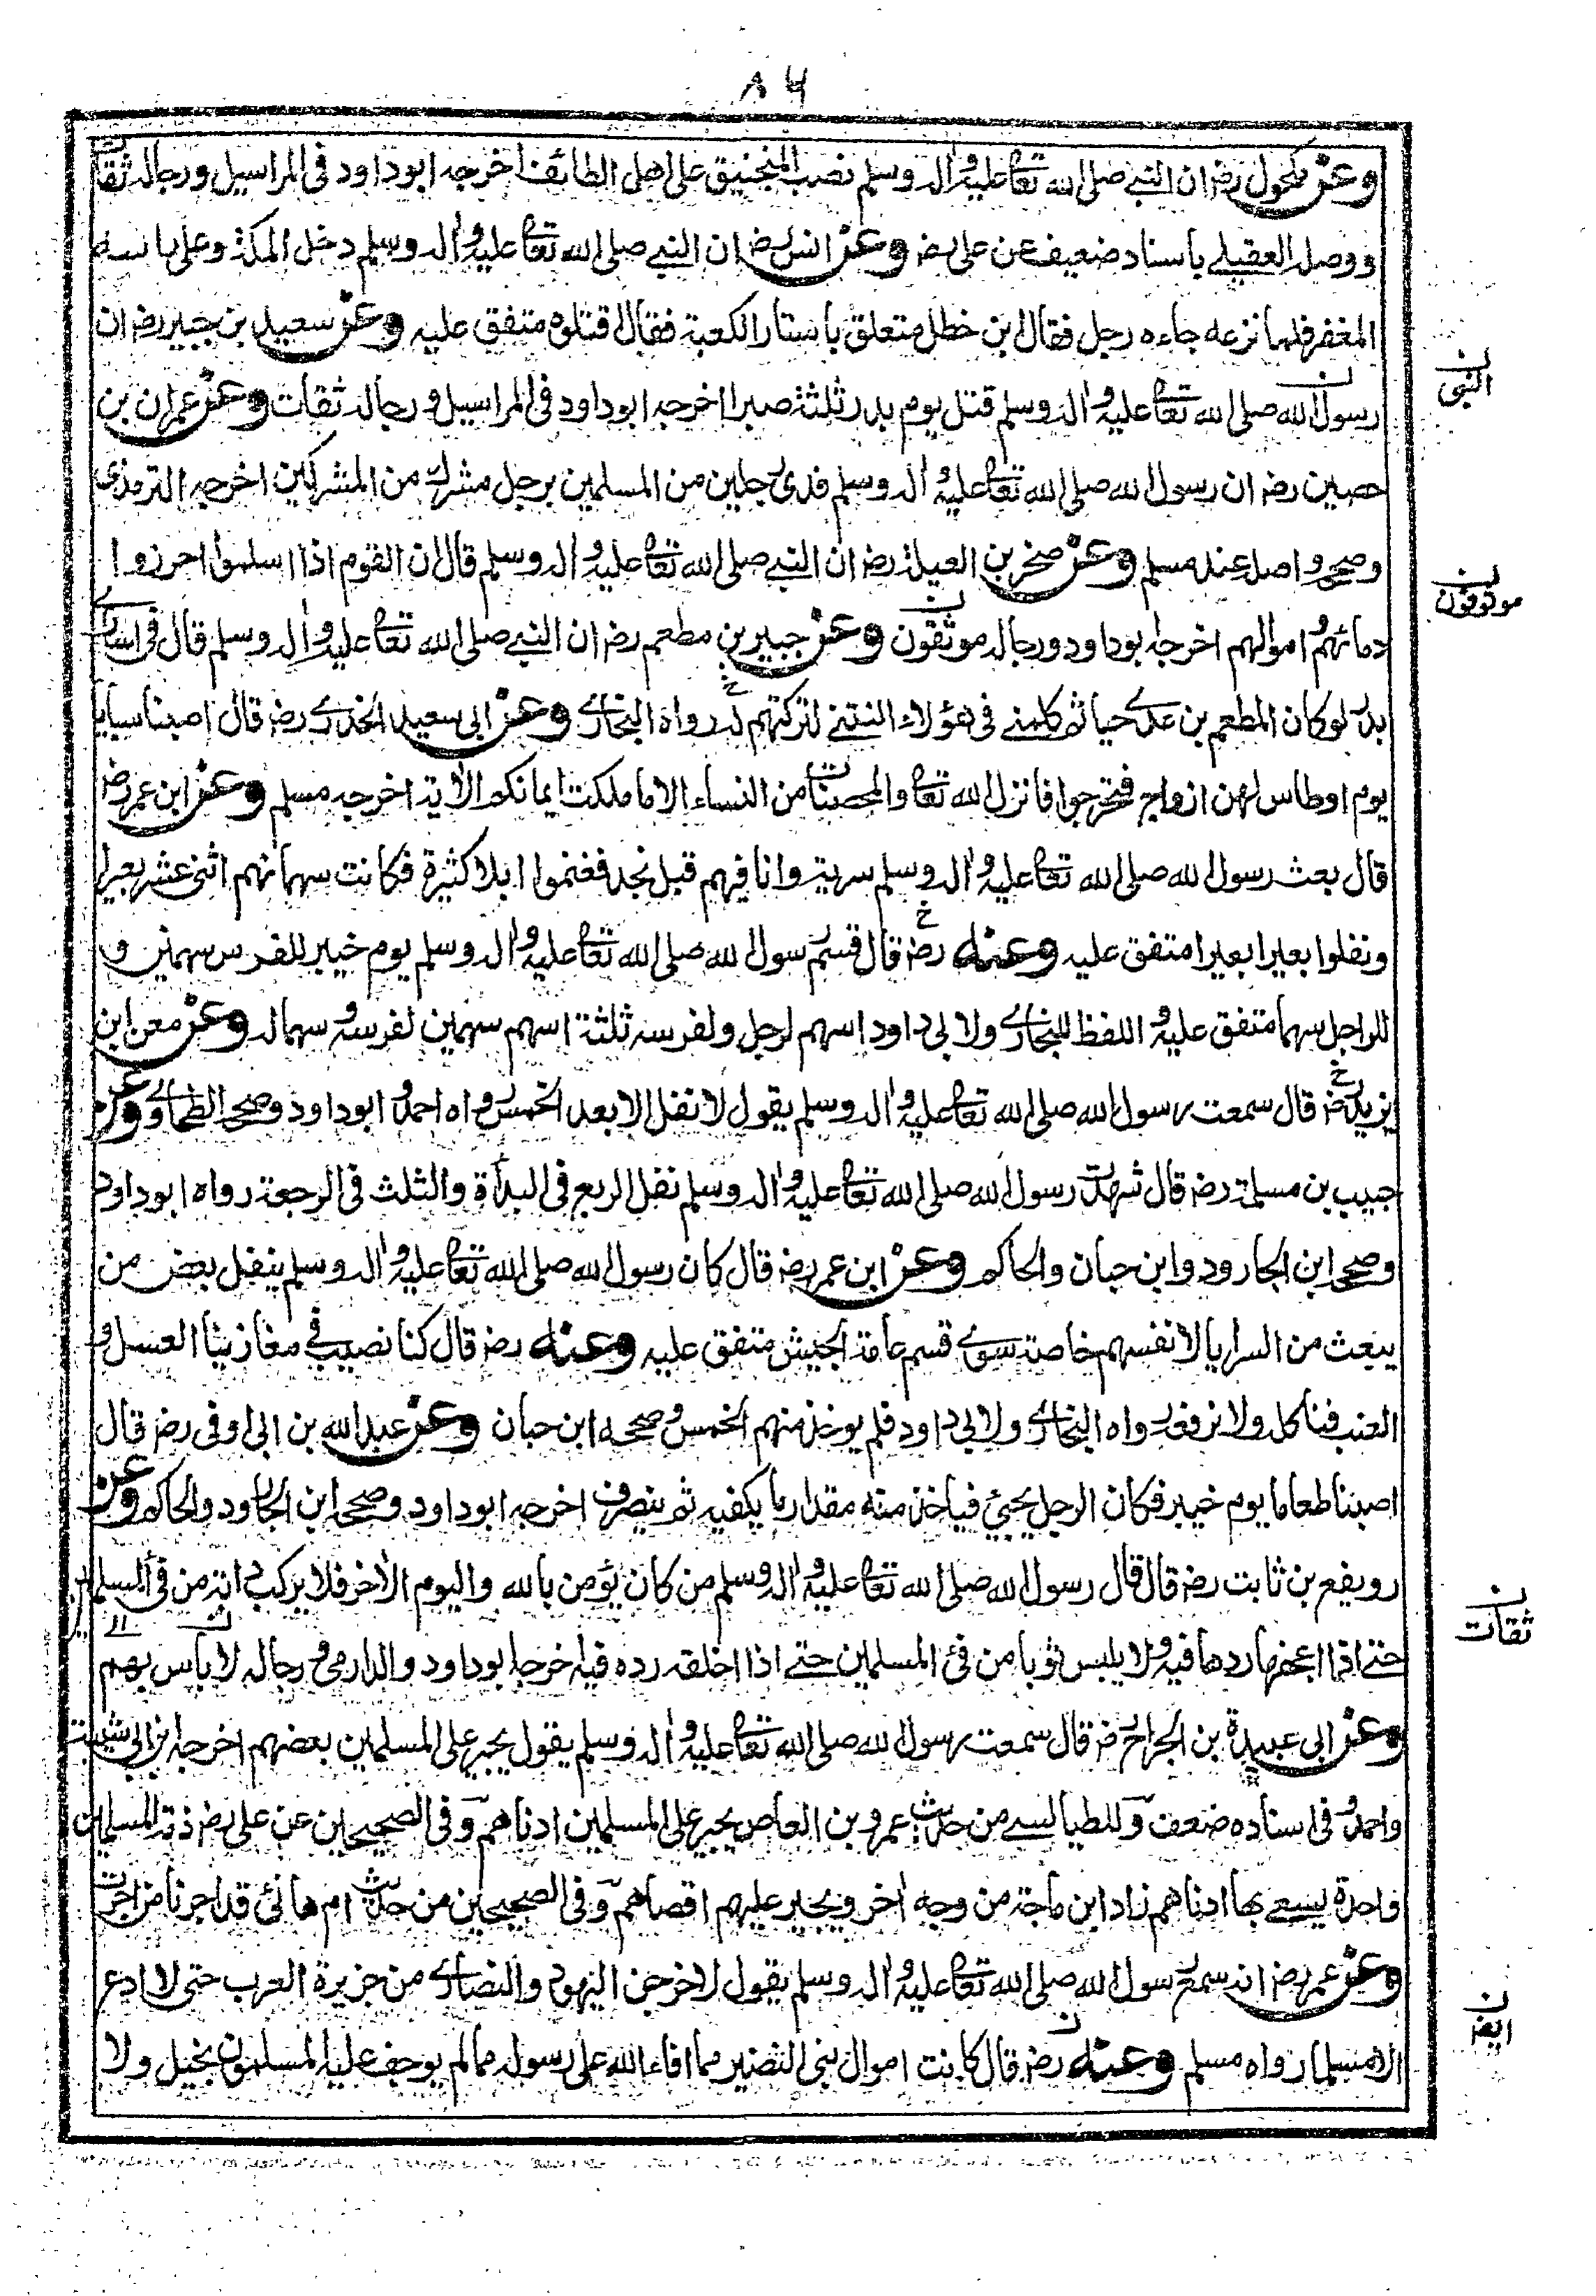 ٨٦
وعن مكحول رضہ ان النبے صلی الله تعا علیہ وآلہ وسلم نصب المنجنیق علی اهل الطائف اخرجہ ابوداود فی المراسیل ورجالہ ثقات
ووصلہ العقیلے باسناد ضعیف عن علی رضہ وعن انس رضہ ان النبے صلی الله تعا علیہ وآلہ وسلم دخل المکۃ وعلی راسہ
المغفر فلما نزعه جاءه رجل فقال ابن خطل متعلق باستار الکعبۃ فقال اقتلوه متفق علیہ وعن سعید بن جبیر رضہ ان
رسول الله صلی الله تعا علیہ وآلہ وسلم قتل یوم بدر ثلثۃ صبرا اخرجہ ابوداود فی المراسیل ورجالہ ثقات وعن عمران بن
النبی
حصین رضہ ان رسول الله صلی الله تعا علیہ وآلہ وسلم فدی رجلین من المسلمین برجل مشرك من المشرکین اخرجہ الترمذی
وصححہ واصلہ عند مسلم وعن صخر بن العیلۃ رضہ ان النبے صلی الله تعا علیہ وآلہ وسلم قال ان القوم اذا اسلموا احرزوا
موثوقون
دمائهم واموالهم اخرجہ ابوداود ورجالہ موثقون وعن جبیر بن مطعم رضہ ان النبے صلی الله تعا علیہ وآلہ وسلم قال فی اسارے
بدر لو کان المطعم بن عدے حیا ثم کلمنے فی هؤلاء النتنے لترکتهم لہ رواه البخارے وعن ابی سعید الخدرے رضہ قال اصبنا سبایا
یوم اوطاس لهن ازواج فتحرجوا فانزل الله تعا والمحصنات من النساء الا ما ملکت ایمانکم الآیۃ اخرجہ مسلم وعن ابن عمر رضہ
قال بعث رسول الله صلی الله تعا علیہ وآلہ وسلم سریۃ وانا فیهم قبل نجد فغنموا ابلا کثیرة فکانت سهمانهم اثنی عشر بعیرا
ونفلوا بعیرا بعیرا متفق علیہ وعنہ رضہ قال قسم رسول الله صلی الله تعا علیہ وآلہ وسلم یوم خیبر للفرس سهمین و
للراجل سهما متفق علیہ واللفظ للبخارے ولابی داود اسهم لرجل ولفرسہ ثلثۃ اسهم سهمین لفرسہ وسهما لہ وعن معن ابن
یزید رضہ قال سمعت رسول الله صلی الله تعا علیہ وآلہ وسلم یقول لا نفل الا بعد الخمس رواه احمد وابوداود وصححہ الطحاوے وعن
حبیب بن مسلمۃ رضہ قال شهدت رسول الله صلی الله تعا علیہ وآلہ وسلم نفل الربع فی البدأة والثلث فی الرجعۃ رواه ابوداود
وصححہ ابن الجارود وابن حبان والحاکم وعن ابن عمر رضہ قال کان رسول الله صلی الله تعا علیہ وآلہ وسلم ینفل بعض من
یبعث من السرایا لانفسهم خاصۃ سوے قسم عامۃ الجیش متفق علیہ وعنہ رضہ قال کنا نصیب فی مغازینا العسل و
العنب فناکل ولا نرفعہ رواه البخارے ولابی داود فلم یوخذ منهم الخمس وصححہ ابن حبان وعن عبد الله بن ابی اوفی رضہ قال
اصبنا طعاما یوم خیبر فکان الرجل یجیئ فیاخذ منه مقدار ما یکفیہ ثم ینصرف اخرجہ ابوداود وصححہ ابن الجارود والحاکم وعن
رویفع بن ثابت رضہ قال قال رسول الله صلی الله تعا علیہ وآلہ وسلم من کان یؤمن بالله والیوم الآخر فلا یرکب دابۃ من فئ المسلمین
ثقات
حتے اذا اعجفها ردها فیہ ولا یلبس ثوبا من فئ المسلمین حتے اذا اخلقہ رده فیہ اخرجہ ابوداود والدارمی ورجالہ لا باس بهم
وعن ابی عبیدة بن الجراح رضہ قال سمعت رسول الله صلی الله تعا علیہ وآلہ وسلم یقول یجیر علی المسلمین بعضهم اخرجہ ابن ابی شیبۃ
واحمد وفی اسناده ضعف وللطیالسے من حدیث عمرو بن العاص یجیر علی المسلمین ادناهم وفی الصحیحین عن علی رضہ ذمۃ المسلمین
واحدة یسعے بها ادناهم زاد ابن ماجۃ من وجه آخر ویجیر علیهم اقصاهم وفی الصحیحین من حدیث ام هانئ قد اجرنا من اجرت
وعن عمر رضہ انہ سمع رسول الله صلی الله تعا علیہ وآلہ وسلم یقول لاخرجن الیهود والنصارے من جزیرة العرب حتی لا ادع
ایضہ
الا مسلما رواه مسلم وعنہ رضہ قال کانت اموال بنی النضیر مما افاء الله علی رسولہ مما لم یوجف علیہ المسلمون بخیل ولا